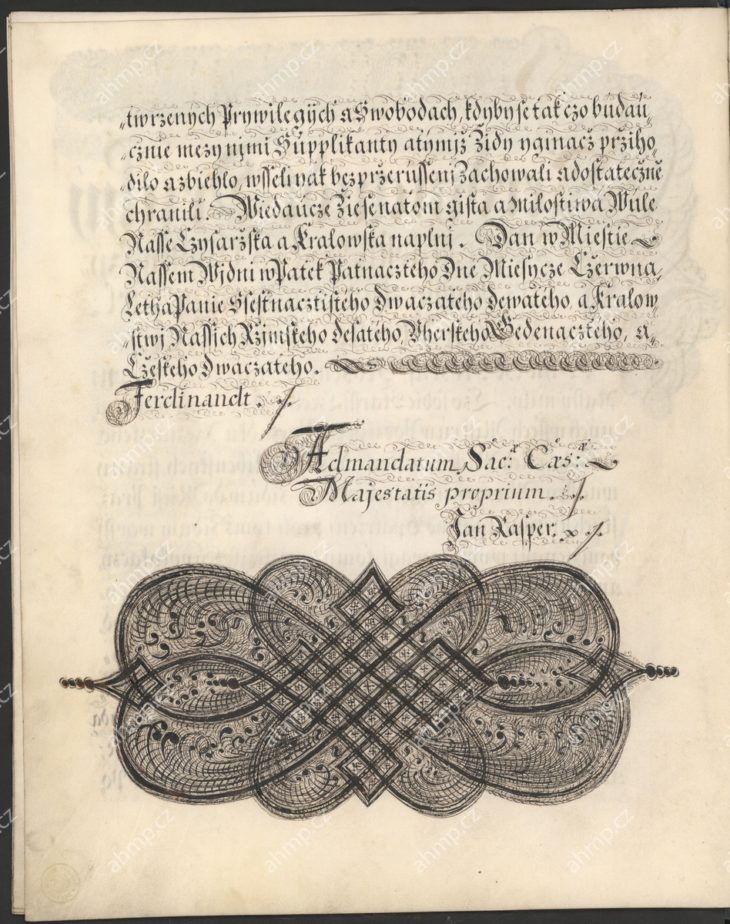 „twrzenych Prywilegijch a Swobodach, kdyby se tak czo budau„
„cznie mezy nimi Supplikanty a tymiž Židy yginacž pržiho„
„dilo a zbiehlo, wsselinak bez przerussenj Zachowali a dostatečzně
chranili. Wiedaucze Žie se na tom gista a Milostiwa Wule
Nasse Czysaržska a Kralowska naplnj. Dan w Miestie
Nassem Wjdni w Patek Patnaczteho Dne Miesycze Cžerwna,
Letha Panie Ssestnacztisteho Dwaczateho dewateho, a Kralow„
„stwj Nassich Ržimskeho desateho, Vherskeho Gedenaczteho, a„
Cžeskeho dwaczateho.
Ferdinandt.
Ad mandatum Sac: Cæs:
Majestatis proprium.
Jan Kasper.
ahmp.cz